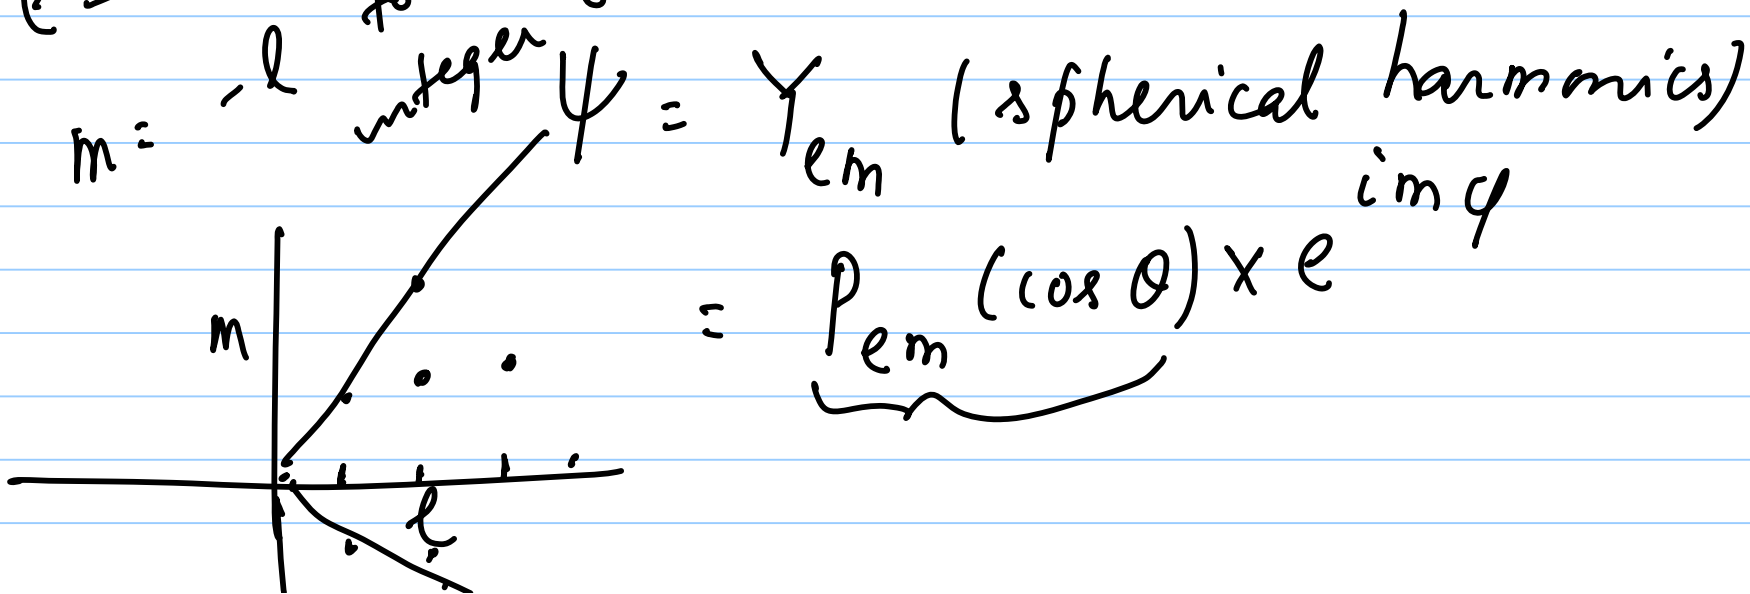 m = -l integer
ψ = Y_{lm} (spherical harmonics)
= P_{lm} (cos θ) × e^{imφ}
m
l